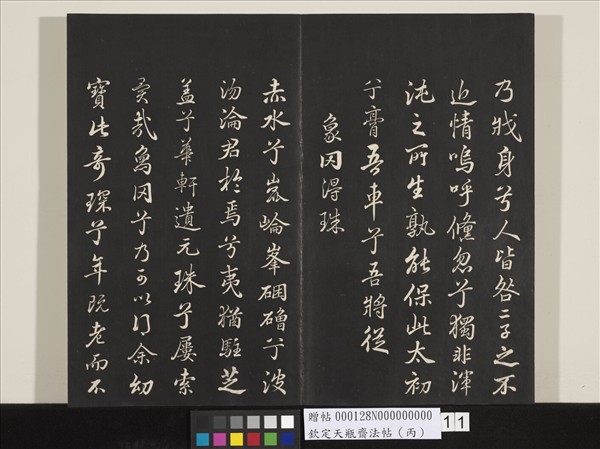 乃戕身兮人皆咎二子之不
近情嗚呼儵忽兮獨非渾
沌之所生孰能保此太初
兮膏吾車兮吾將從
象罔得珠
赤水兮崑崘峯硱磳兮波
沕淪君於焉兮夷猶駐芝
蓋兮華軒遺元珠兮屢索
異哉象罔兮乃可以得余幼
寶此奇琛兮年既老而不
贈帖 000128N000000000
欽定天瓶齋法帖（丙）
11